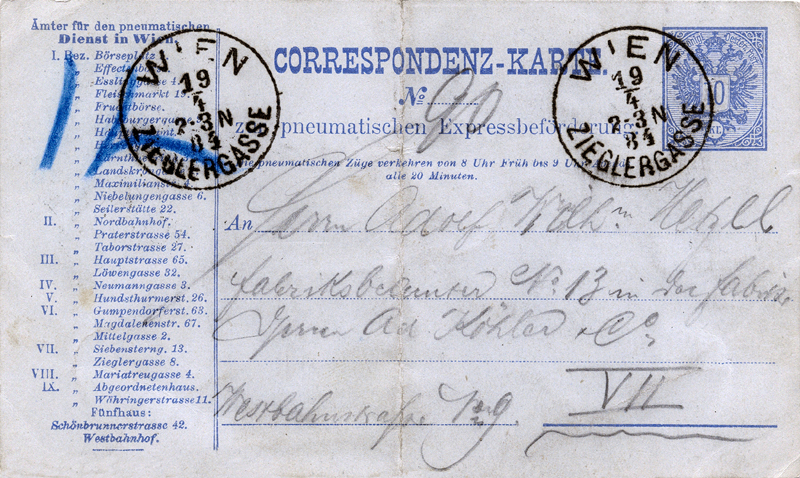 Ämter für den pneumatischen
Dienst in Wien.
I. Bez. Börseplatz
„ Effectenb
„ Esslingasse 4.
„ Fleischmarkt 19.
„ Fruchtbörse.
„ Habsburgerga
„
„
„ Kärnthne
„ Landskrongas
„ Maximilianst
„ Niebelungengasse 6.
„ Seilerstätte 22.
II. Nordbahnhof.
„ Praterstrasse 54.
„ Taborstrasse 27.
III. Hauptstrasse 65.
„ Löwengasse 32.
IV. Neumanngasse 3.
V. Hundsthurmerst. 26.
VI. Gumpendorferst. 63.
„ Magdalenenstr. 67.
„ Mittelgasse 2.
VII. Siebensterng. 13.
„ Zieglergasse 8.
VIII. Mariatreugasse 4.
IX. Abgeordnetenhaus.
„ Währingerstrasse 11.
Fünfhaus:
Schönbrunnerstrasse 42.
Westbahnhof.
WIEN
19
4
2-3N
84
ZIEGLERGASSE
CORRESPONDENZ-KARTE
No 90
zur pneumatischen Expressbeförderung
Die pneumatischen Züge verkehren von 8 Uhr Früh bis 9 Uhr Abends
alle 20 Minuten.
WIEN
19
4
2-3N
84
ZIEGLERGASSE
10
An Herrn Adolf
Fabriksbeamter No 13 in der Fabrik
Herrn Ad Köhler & Co
Westbahnstrasse No 9
VII